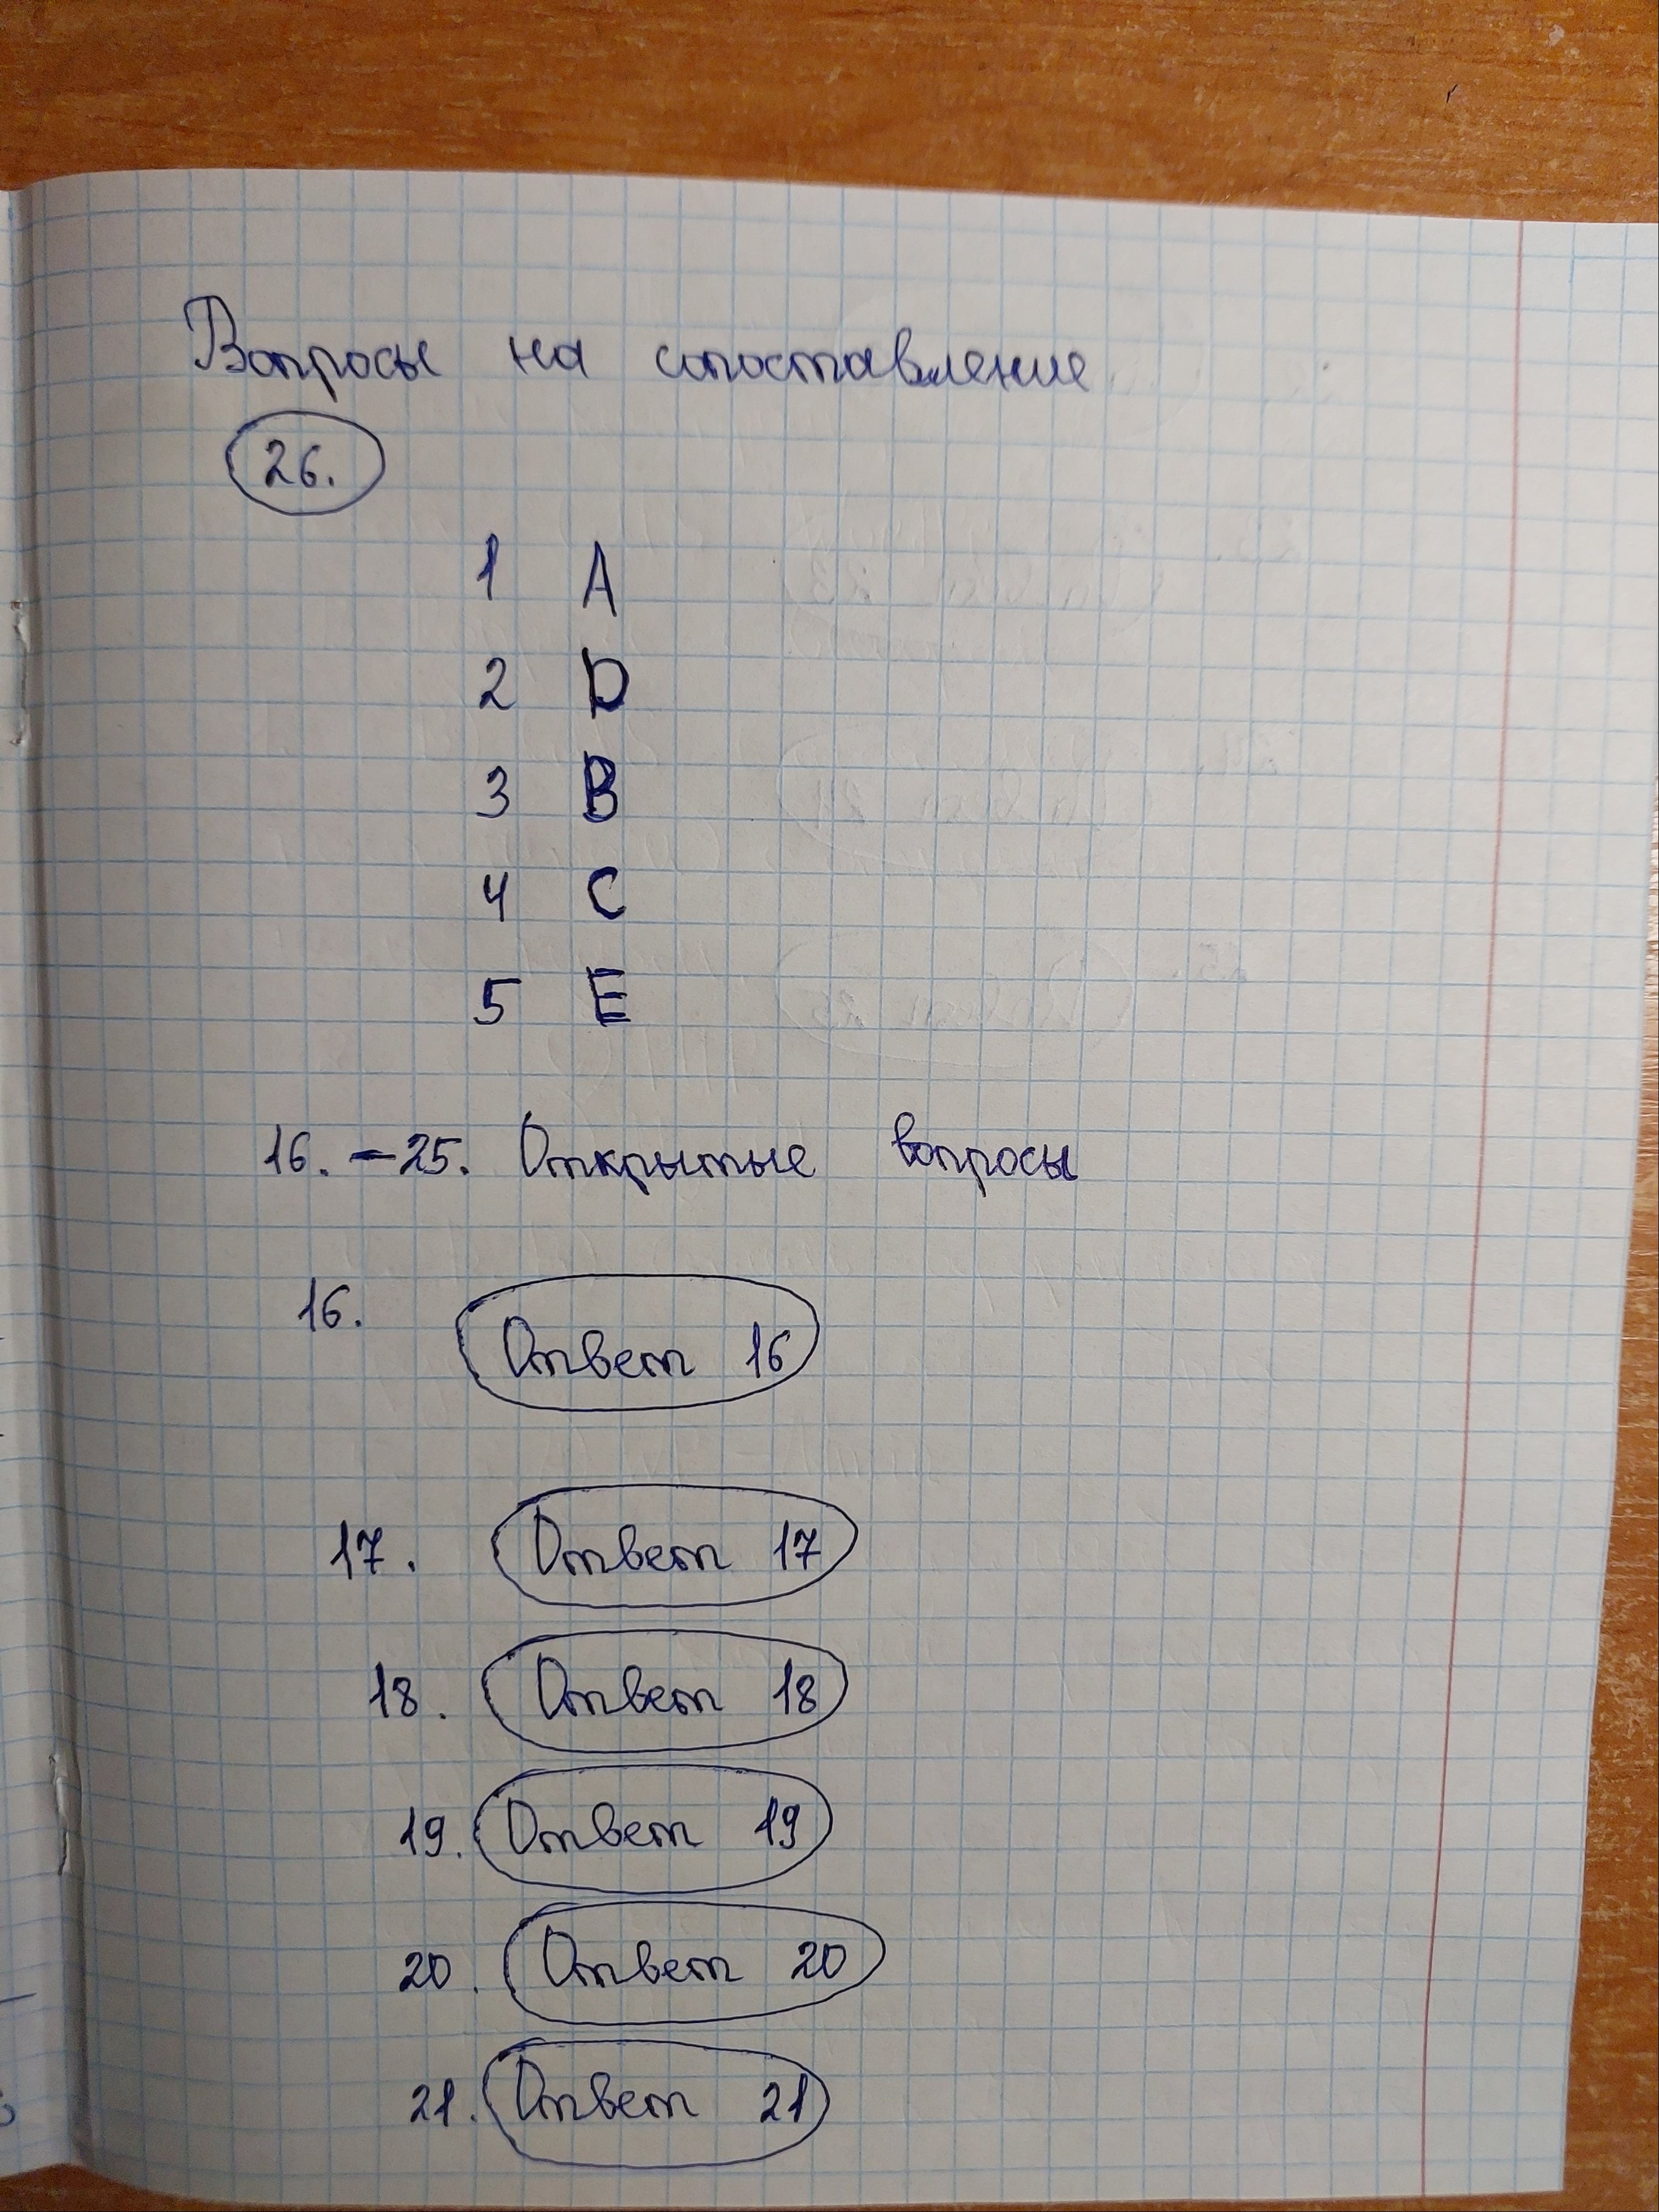 Вопросы на сопоставление
26.
1 A
2 D
3 B
4 C
5 E
16. – 25. Открытые вопросы
16. Ответ 16
17. Ответ 17
18. Ответ 18
19. Ответ 19
20. Ответ 20
21. Ответ 21